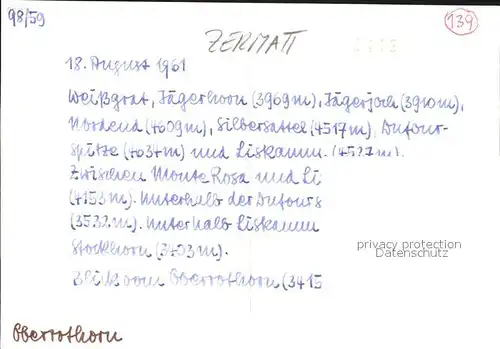 98/59
139
ZERMATT
18. August 1961
Weißgrat, Jägerhorn (3969m), Jägerjoch (3910m),
Nordend (4609m), Silbersattel (4517m), Dufour-
spitze (4634m) und Liskamm (4527m).
Zwischen Monte Rosa und Li
(4153m). Unterhalb der Dufours
(3532m). Unterhalb Liskamm
Stockhorn (3403m).
privacy protection
Datenschutz
Blick vom Oberrothorn (3415
Oberrothorn